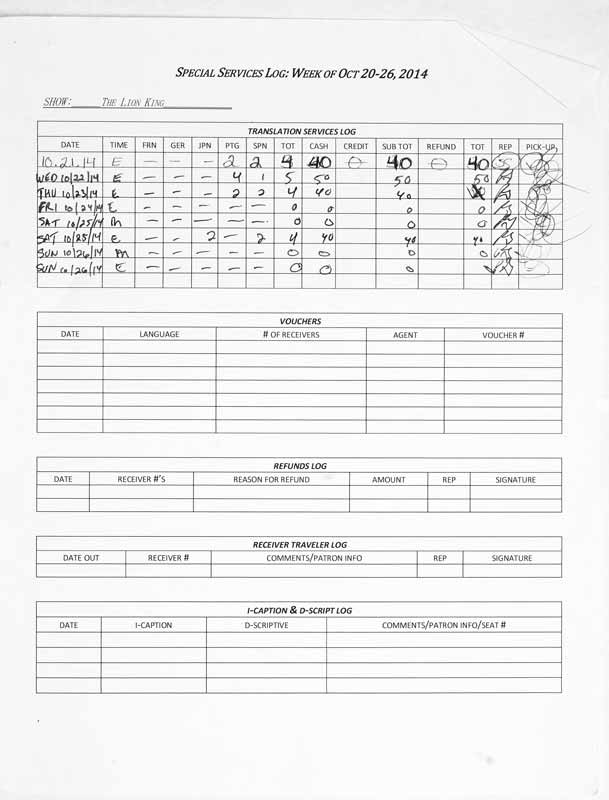 SPECIAL SERVICES LOG: WEEK OF OCT 20-26, 2014
SHOW: THE LION KING
TRANSLATION SERVICES LOG
DATE TIME FRN GER JPN PTG SPN TOT CASH CREDIT SUB TOT REFUND TOT REP PICK-UP
10.21.14 E — — — 2 2 4 40 0 40 0 40
WED 10/22/14 E — — — 4 1 5 50 50 50
THU 10/23/14 E — — — 2 2 4 40 40
FRI 10/24/14 E — — — — — 0 0 0 0
SAT 10/25/14 M — — — — — 0 0 0 0
SAT 10/25/14 E — — 2 — 2 4 40 40 40
SUN 10/26/14 M — — — — — 0 0 0 0
SUN 10/26/14 E — — — — — 0 0 0
VOUCHERS
DATE LANGUAGE # OF RECEIVERS AGENT VOUCHER #
REFUNDS LOG
DATE RECEIVER #'S REASON FOR REFUND AMOUNT REP SIGNATURE
RECEIVER TRAVELER LOG
DATE OUT RECEIVER # COMMENTS/PATRON INFO REP SIGNATURE
I-CAPTION & D-SCRIPT LOG
DATE I-CAPTION D-SCRIPTIVE COMMENTS/PATRON INFO/SEAT #